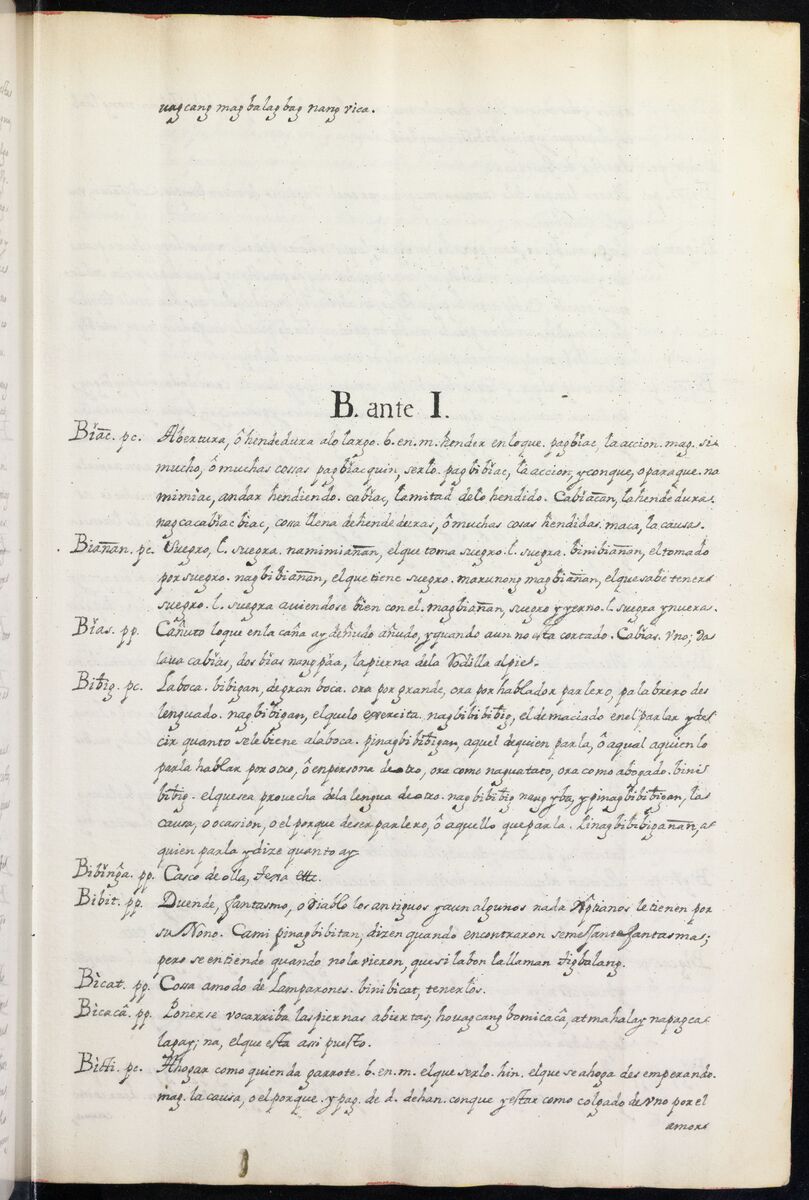 uag cang mag balag bag nang vica.
B. ante I.
Biac. pc. Abertura, ô hendedura alo largo. b. en. m. hender en loque. pag biac, la accion. mag. si
mucho, ô muchas cossas pag biac quin, serlo. pag bibiac, la accion, y conque, o paraque. na
mimiac, andar hendiendo. cabiac, la mitad delo hendido. Cabiacan, la hendeduras.
nag cacabiac biac, cossa llena de hendeduras, ô muchas cosas hendidas. maca, la causa.
Bianan. pc. Suegro, l. suegra. namimianan, el que toma suegro. l. suegra. binibianan, el tomado
por suegro. nag bibianan, el que tiene suegro. marunong mag bianan, el que sabe tener
suegro. l. suegra auiendose bien con el. mag bianan, suegro y yerno. l. suegra y nuera.
Bias. pp. Cañuto loque en la caña ay de ñudo añudo, y quando aun no esta cortado. Cabias. vno; da
laua cabias, dos bias nang paa, la pierna dela Rodilla al pie.
Bibig. pc. La boca. bibigan, de gran boca. ora por grande, ora por hablador parlero, palabrero des
lenguado. nag bibigan, el quelo exercita. nag bibibig, el demaciado en el parlar y de
cir quanto sele biene ala boca. pinag bibibigan, aquel de quien parla, ô aqual aquien lo
parla hablar por otro, ô en persona de otro, ora como naguatato, ora como abogado. bini
bibig. el que sea prouecha dela lengua de otro. nag bibibig nang yba, y pinag bibibigan, la
causa, o ocassion, o el porque deser parlero, ô aquello que parla. Pinag bibibiganan, a
quien parla y dize quanto ay
Bibinga. pp. Casco de olla, texa etc.
Bibit. pp. Duende, fantasmo, o diablo los antiguos y aun algunos nada Xptianos le tienen por
su Nono. Cami pinag bibitan, dizen quando encontraron semejante fantasmas;
pero se entiende quando no la vieron, que si la bon la llaman tig balang.
Bicat. pp. Cossa amodo de Lamparones. binibicat, tenerlos.
Bicaca. pp. Ponerse vocarriba las piernas abiertas; houag cang bomicaca, at mahalay napagca
lagay; na, el que esta assi puesto.
Bicti. pc. Ahogar como quien da garrote. b. en. m. el que serlo. hin. el que se ahoga des emperando.
mag. la causa, o el porque. y pag. de d. dehan. conque y estar como colgado de vno por el
amor